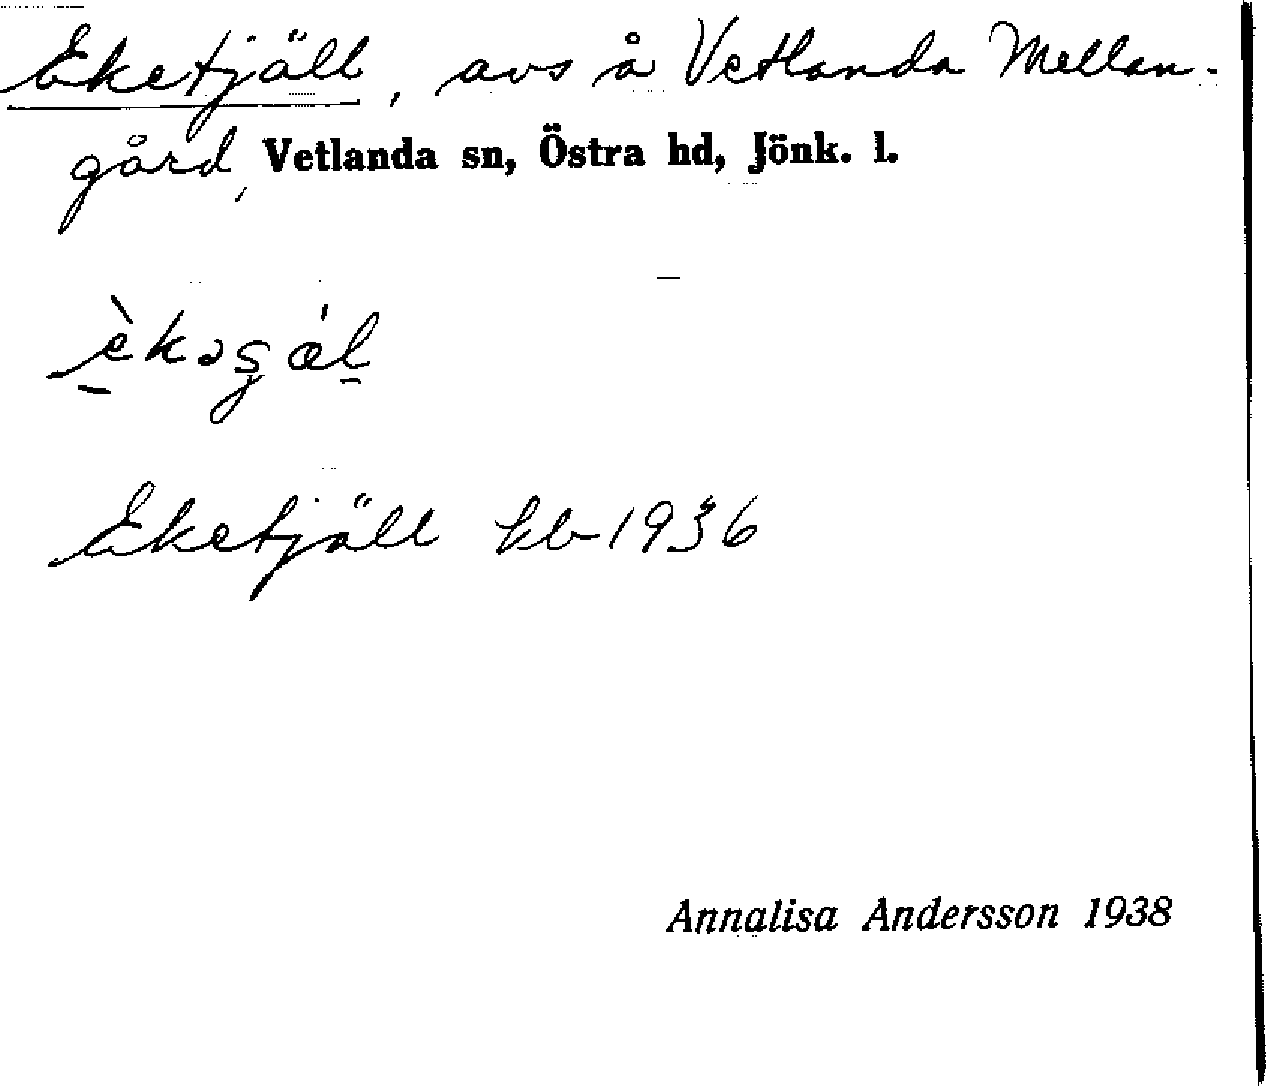 Eketjäll, avs å Vetlanda Mellan-
gård, Vetlanda sn, Östra hd, Jönk. l.
Eketjäll kb 1936
Annalisa Andersson 1938